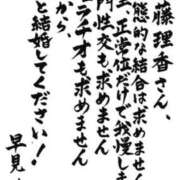 藤理香さん、
態的な結合は求めません
、正常位だけで我慢しま
門性交も求めません
ラチオも求めません
から、
と結婚してください!
早見